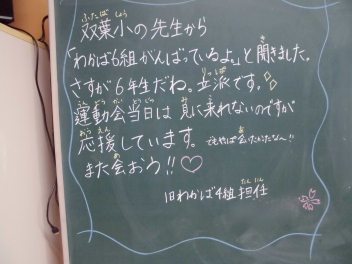 双葉小の先生から
「わかば6組がんばっているよ。」と聞きました。
さすが6年生だね。立派です。
運動会当日は見に来れないのですが
応援しています。でもやっぱ会いたかったな〜!!
また会おう!!♡
旧わかば4組担任